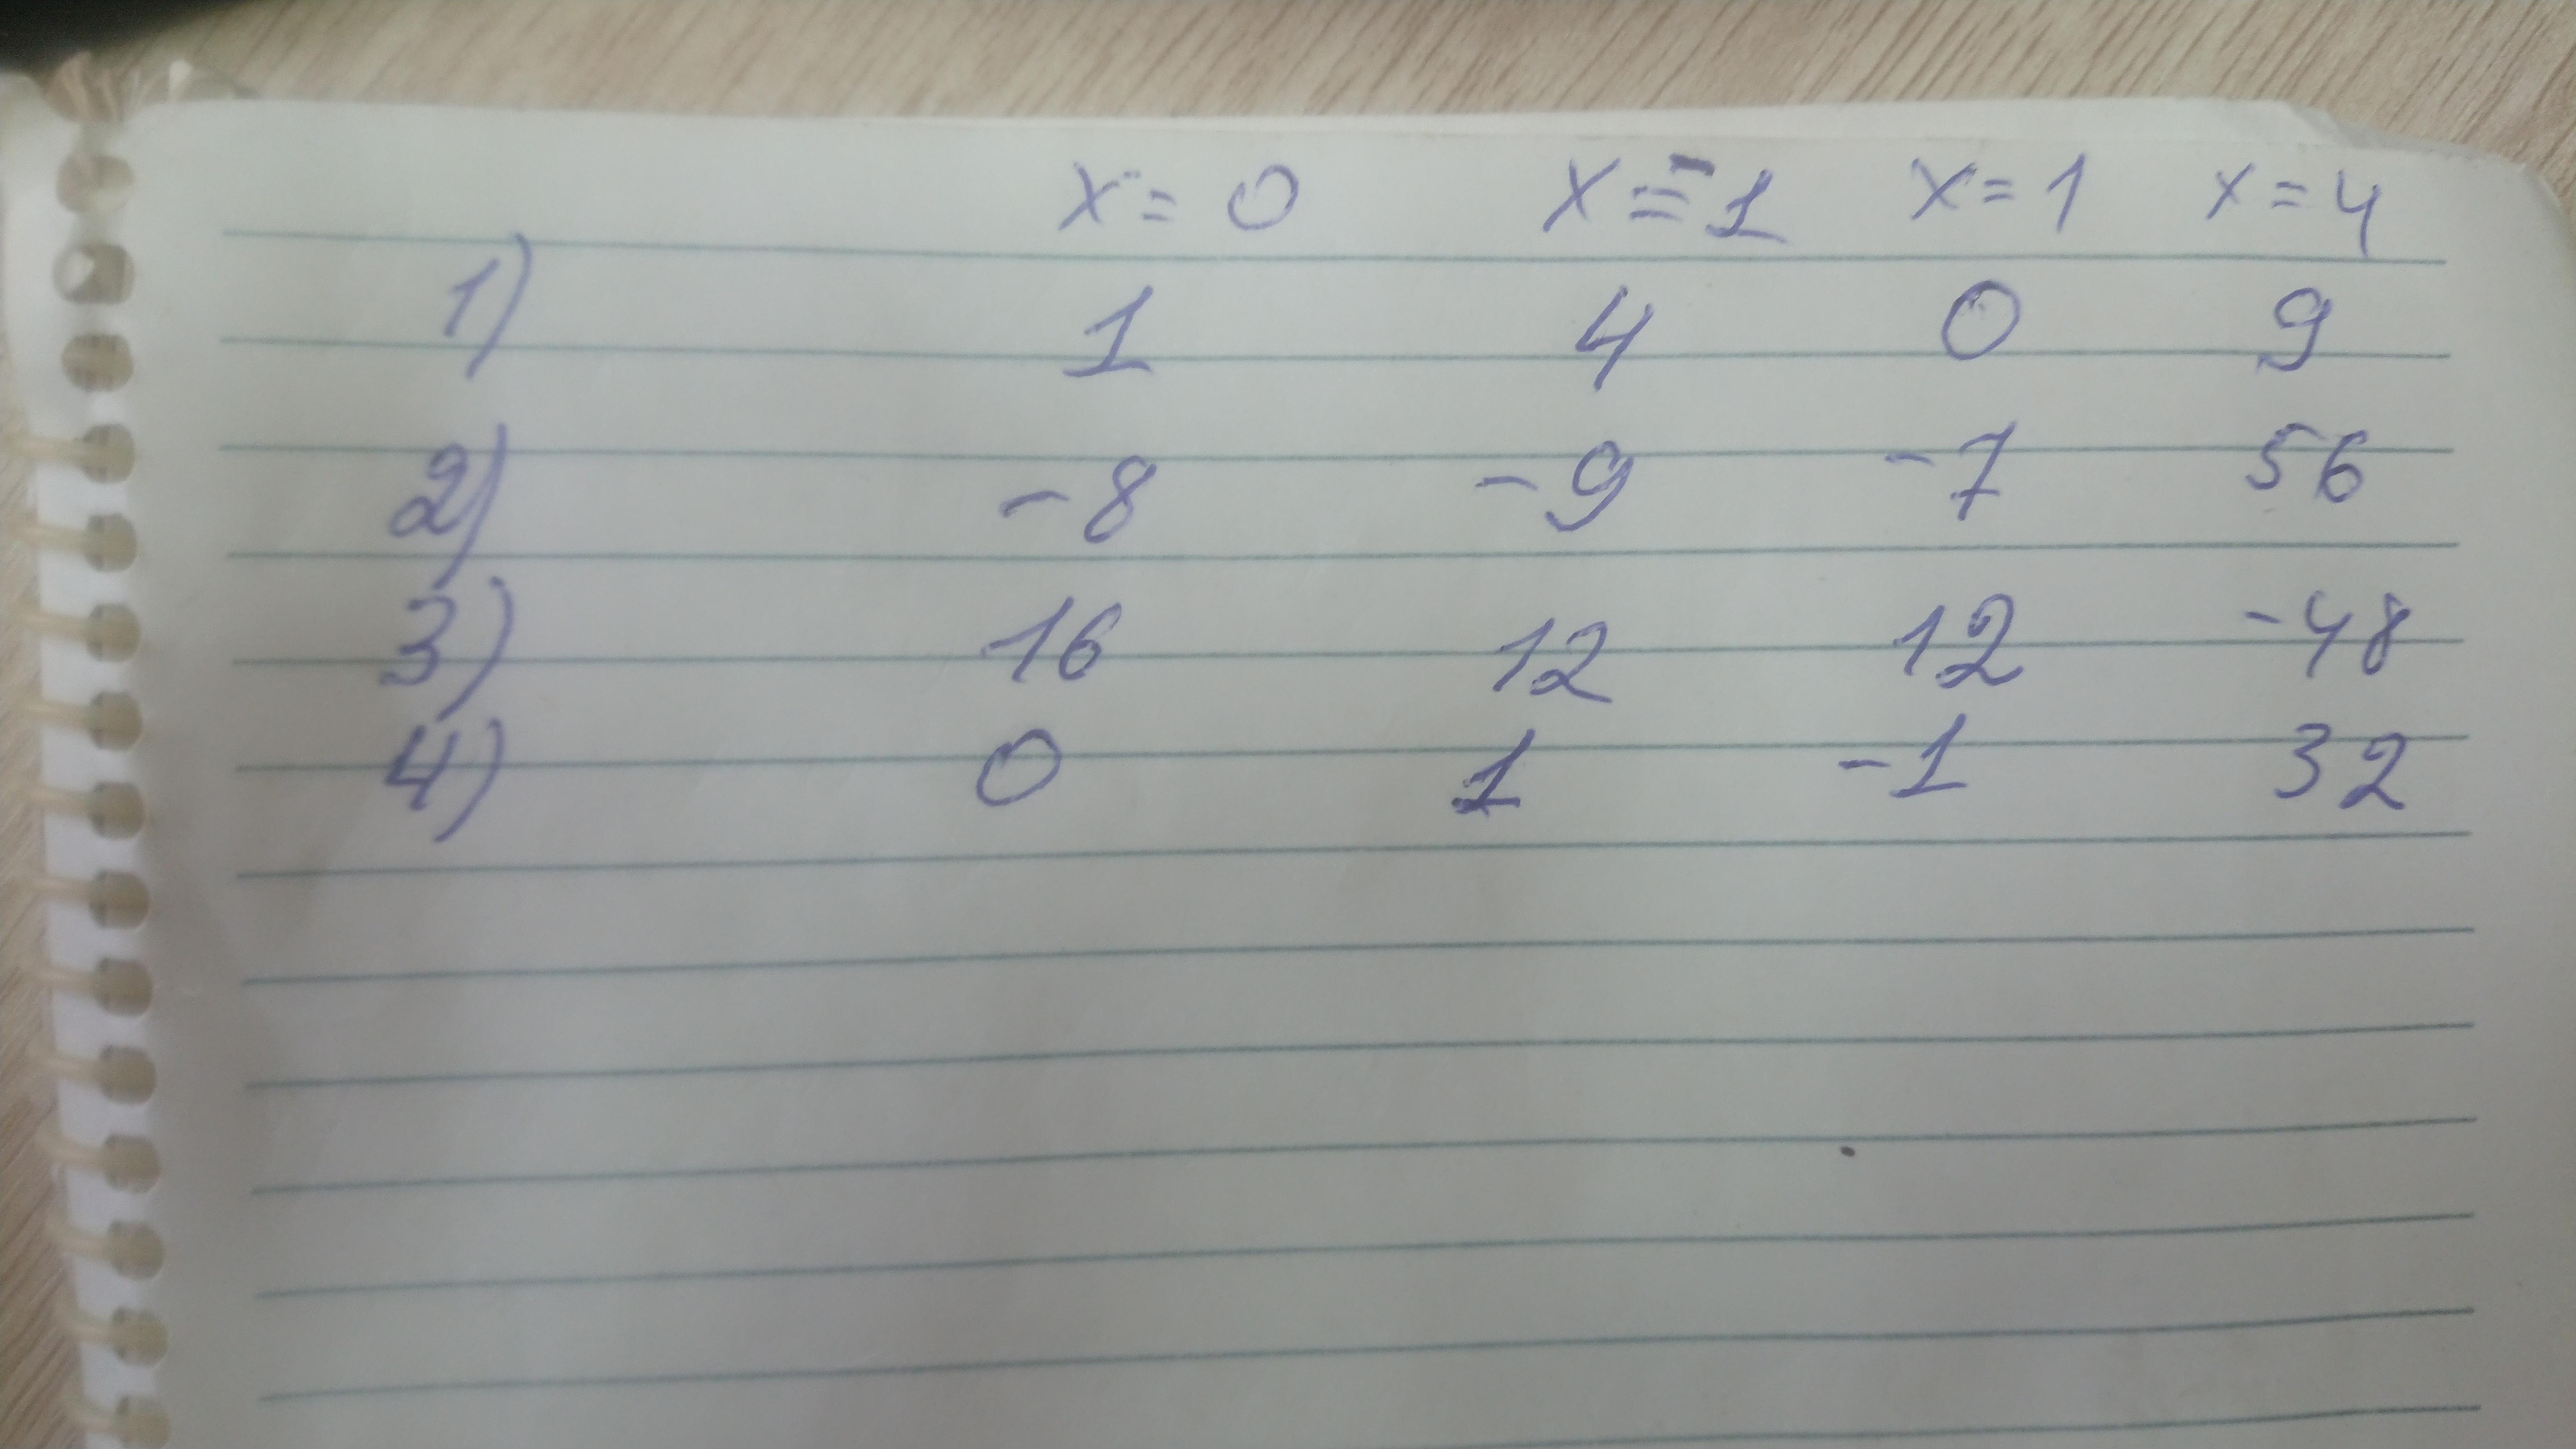 x = 0 x = -1 x = 1 x = 4
1) 1 4 0 9
2) -8 -9 -7 56
3) 16 12 12 -48
4) 0 1 -1 32